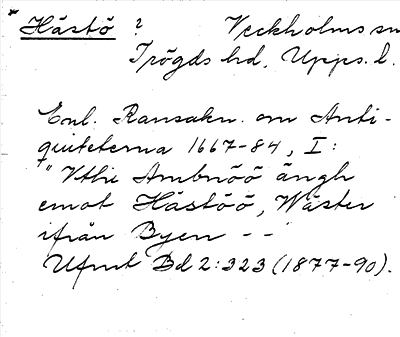 Hästö ? Veckholms sn
Trögds hd, Upps. l.
Enl. Ransakn. om Anti-
quiteterna 1667-84, I:
"Vthi Ambnöö ängh
emot Hästöö, Wäster
ifrån Byen - -"
Ufmt Bd 2:323 (1877-90).